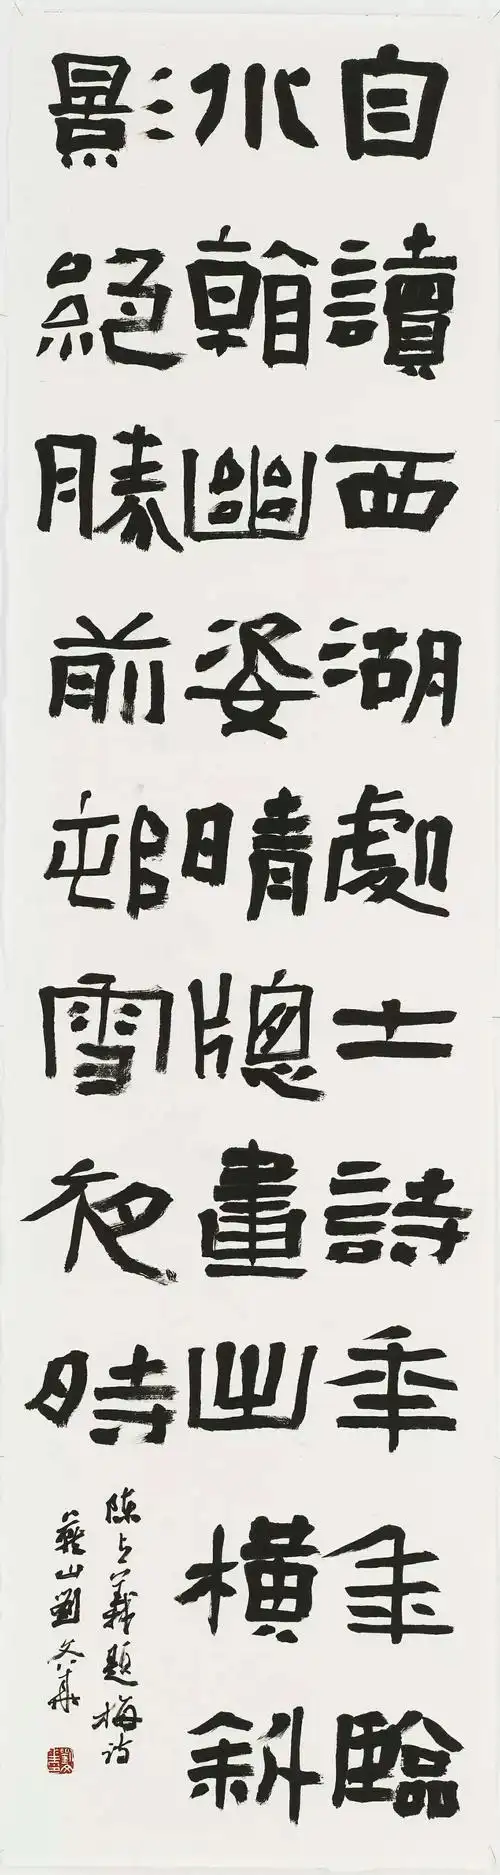 自讀西湖處士詩年年臨
水看幽姿晴牕畫出橫斜
影絕勝前邨雪夜時
陳與義題梅詩
山劉文華